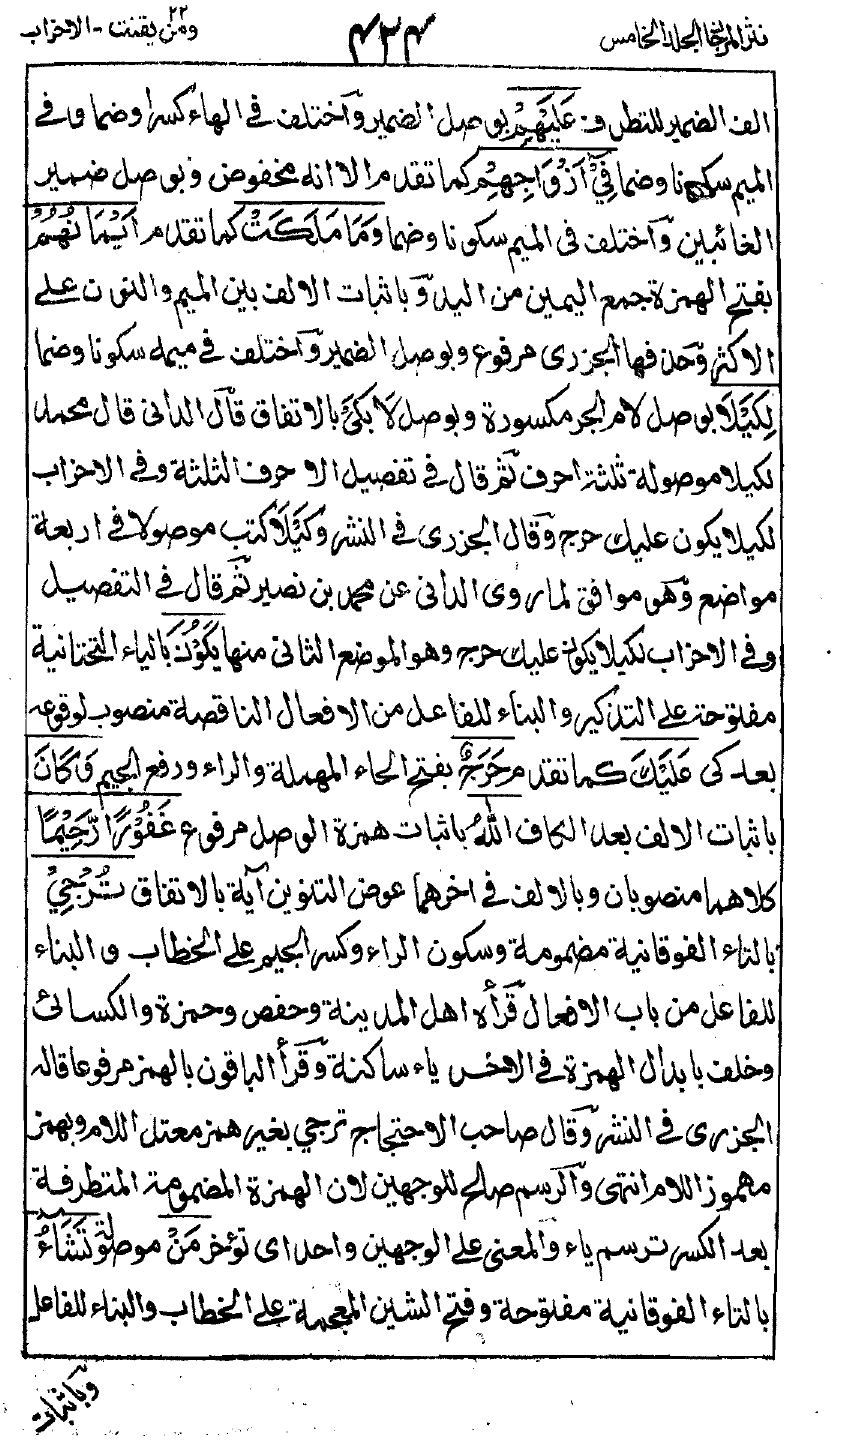 نثر المرجان المجلد الخامس
٤٣٤
ومن يقنت ٢٢ - الاحزاب
الف الضمير للتطرف عَلَيْهِمْ بوصل الضمير وآختلف في الهاء كسرا وضما وفي
الميم سكونا وضما فِيْٓ اَزْوَاجِهِمْ كما تقدم الا انه مخفوض وبوصل ضمير
الغائبين وآختلف في الميم سكونا وضما وَمَا مَلَكَتْ كما تقدم اَيْمَانُهُمْ
بفتح الهمزة جمع اليمين من اليد وباثبات الالف بين الميم والنون على
الاكثر وحذفها الجزري مرفوع وبوصل الضمير وآختلف في ميمه سكونا وضما
لِكَيْلَا بوصل لام الجر مكسورة وبوصل لَا بكَيْ بالاتفاق قال الداني قال محمد
لكيلا موصولة ثلثة احرف ثم قال في تفصيل الاحرف الثلثة وفي الاحزاب
لكيلا يكون عليك حرج وقال الجزري في النشر وكَيْلَا كتب موصولا في اربعة
مواضع وهو موافق لما روى الداني عن محمد بن نصير ثم قال في التفصيل
وفي الاحزاب لكيلا يكون عليك حرج وهو الموضع الثاني منها يَكُوْنَ بالياء التحتانية
مفتوحة على التذكير والبناء للفاعل من الافعال الناقصة منصوب لوقوعه
بعد كي عَلَيْكَ كما تقدم حَرَجٌ بفتح الحاء المهملة والراء ورفع الجيم وَكَانَ
باثبات الالف بعد الكاف اللّٰهُ باثبات همزة الوصل مرفوع غَفُوْرًا رَّحِيْمًا
كلاهما منصوبان وبالالف في اخرهما عوض التنوين آية بالاتفاق تُرْجِيْ
بالتاء الفوقانية مضمومة وسكون الراء وكسر الجيم على الخطاب والبناء
للفاعل من باب الافعال قرأه اهل المدينة وحفص وحمزة والكسائي
وخلف بابدال الهمزة في الاخر ياء ساكنة وقرأ الباقون بالهمز مرفوعا قاله
الجزري في النشر وقال صاحب الاحتجاج ترجي بغير همز معتل اللام وبهمز
مهموز اللام انتهى وآلرسم صالح للوجهين لان الهمزة المضمومة المتطرفة
بعد الكسر ترسم ياء والمعنى على الوجهين واحد اي تؤخر مَنْ موصولة تَشَآءُ
بالتاء الفوقانية مفتوحة وفتح الشين المعجمة على الخطاب والبناء للفاعل
وباثبات